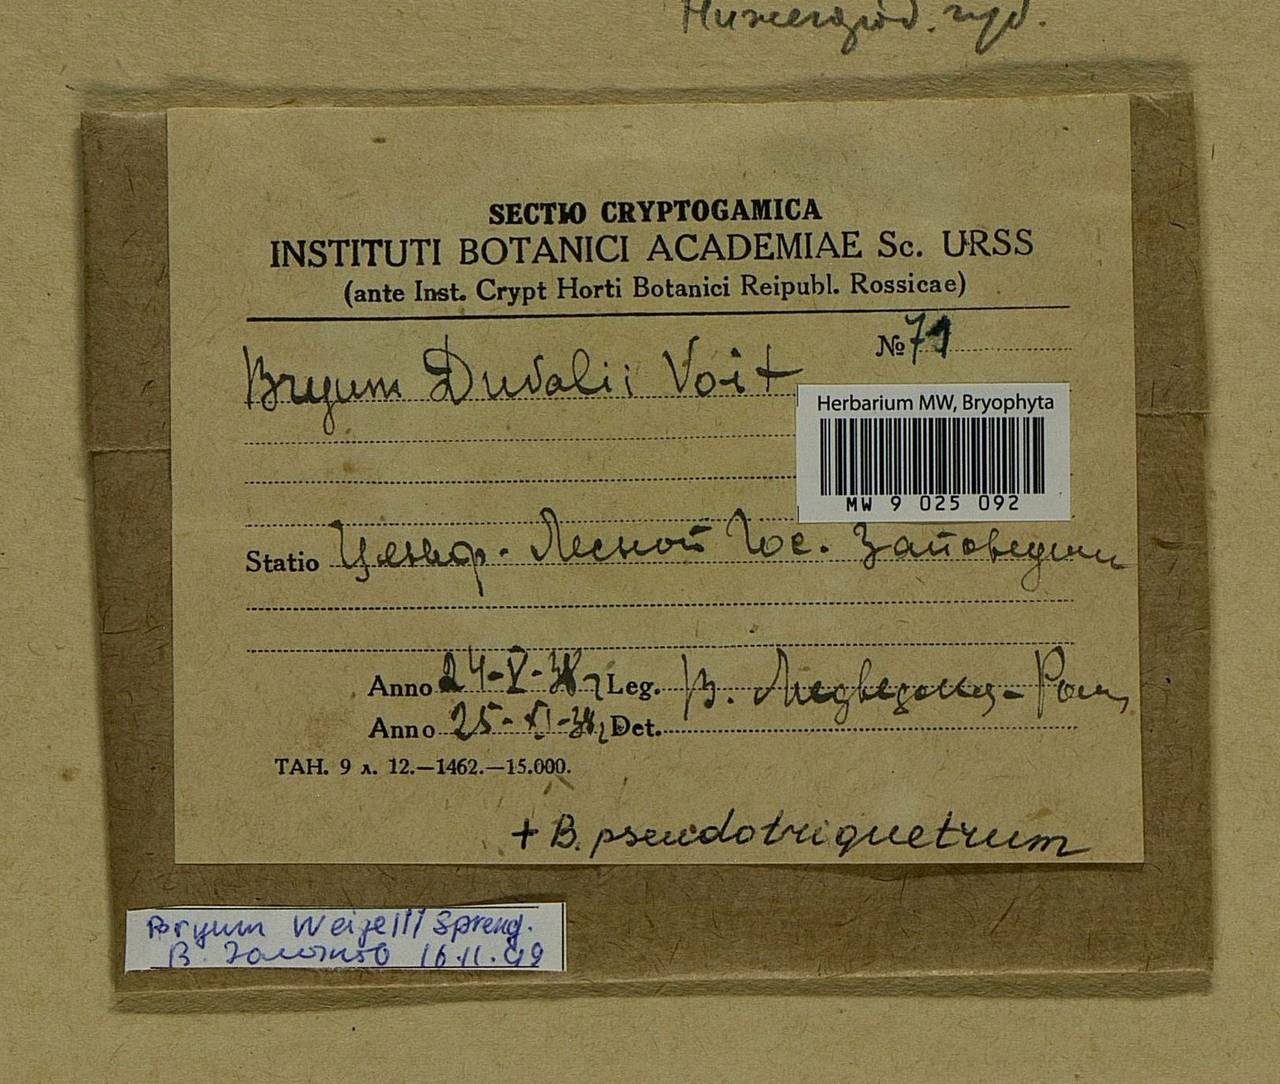 SECTIO CRYPTOGAMICA
INSTITUTI BOTANICI ACADEMIAE Sc. URSS
(ante Inst. Crypt Horti Botanici Reipubl. Rossicae)
№ 71
Bryum Duvalii Voit
Herbarium MW, Bryophyta
MW 9 025 092
Statio Центр.-Лесной Гос. Заповедник
Anno 24-V-38, Leg. В.
Anno 25-XI-38, Det.
ТАН. 9 л. 12.—1462.—15.000.
+ B. pseudotriquetrum
Bryum Weigelii Spreng.
В. Золотов 16.11.99